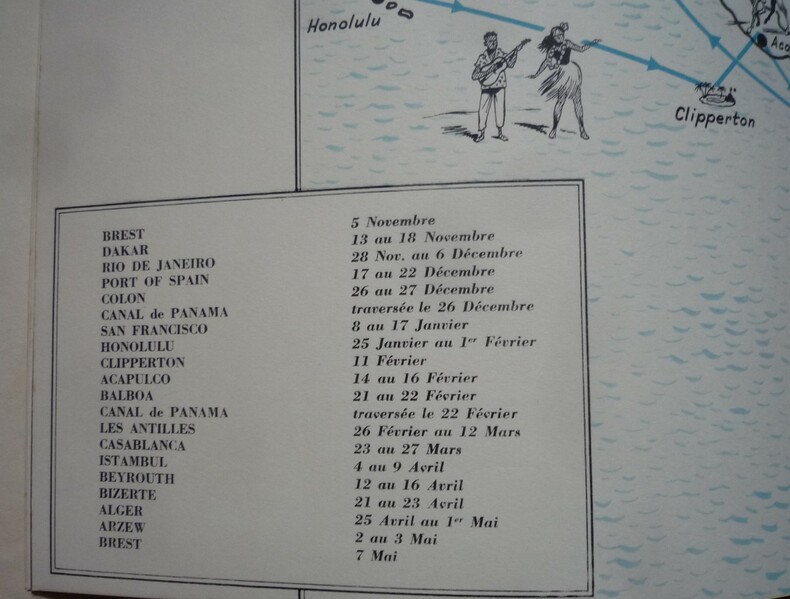 Honolulu
Aca
Clipperton
BREST 5 Novembre
DAKAR 13 au 18 Novembre
RIO DE JANEIRO 28 Nov. au 6 Décembre
PORT OF SPAIN 17 au 22 Décembre
COLON 26 au 27 Décembre
CANAL de PANAMA traversée le 26 Décembre
SAN FRANCISCO 8 au 17 Janvier
HONOLULU 25 Janvier au 1er Février
CLIPPERTON 11 Février
ACAPULCO 14 au 16 Février
BALBOA 21 au 22 Février
CANAL de PANAMA traversée le 22 Février
LES ANTILLES 26 Février au 12 Mars
CASABLANCA 23 au 27 Mars
ISTAMBUL 4 au 9 Avril
BEYROUTH 12 au 16 Avril
BIZERTE 21 au 23 Avril
ALGER 25 Avril au 1er Mai
ARZEW 2 au 3 Mai
BREST 7 Mai